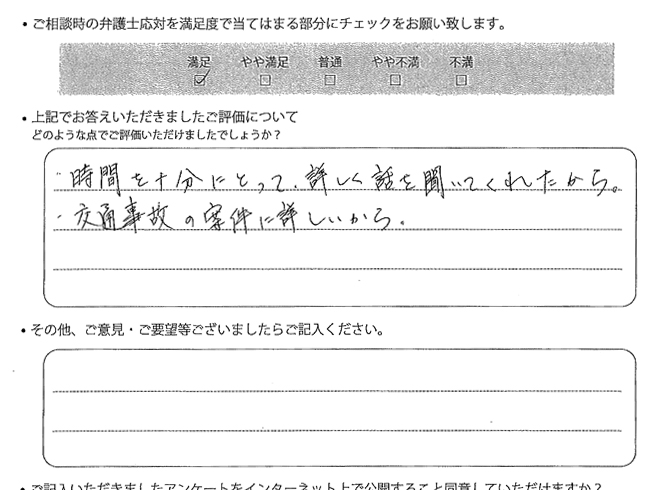 • ご相談時の弁護士応対を満足度で当てはまる部分にチェックをお願い致します。
満足 やや満足 普通 やや不満 不満
☑ □ □ □ □
• 上記でお答えいただきましたご評価について
どのような点でご評価いただけましたでしょうか？
・時間を十分にとって、詳しく話を聞いてくれたから。
・交通事故の案件に詳しいから。
• その他、ご意見・ご要望等ございましたらご記入ください。
• ご記入いただきましたアンケートをインターネット上で公開すること同意していただけますか？